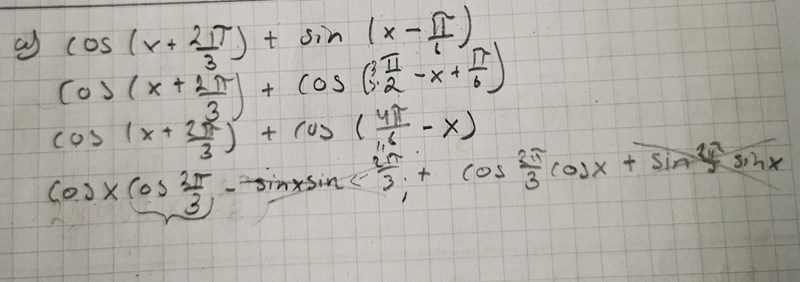 a) cos (x + 2π/3) + sin (x - π/6)
cos (x + 2π/3) + cos (π/2 - x + π/6)
cos (x + 2π/3) + cos (4π/6 - x)
cos x cos 2π/3 - sin x sin 2π/3 + cos 2π/3 cos x + sin 2π/3 sin x